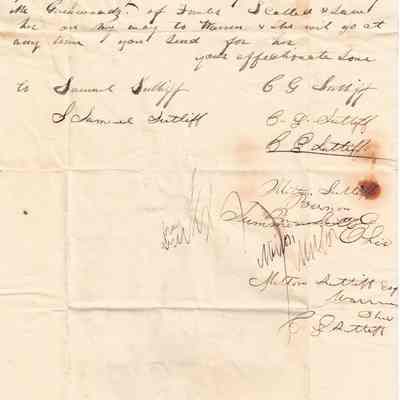 Mr Greenwoods of Fowler I called & saw
her on my way to Warren & she will go at
any time you send for her
your affectionate Sons
to Samuel Sutliff C G Sutliff
S Samuel Sutliff C. G. Sutliff
C G Sutliff
Milton Sutliff
Vernon
Ohio
Milton
Milton
Milton Sutliff Esq
Warren
Ohio
C. G Sutliff